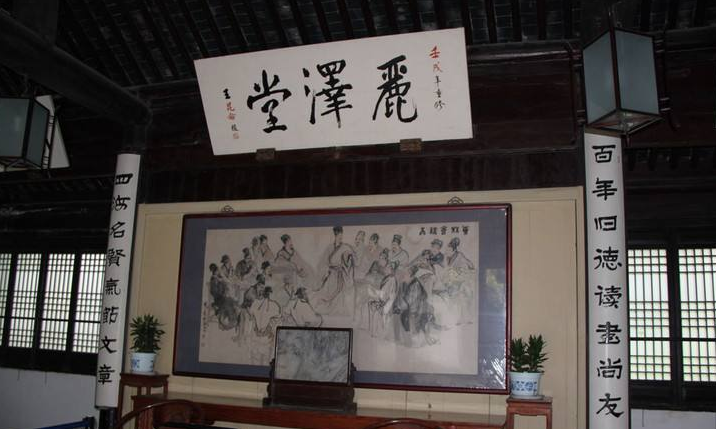 麗澤堂
壬戌年重修
王昆侖題
百年旧德读書尚友
四海名賢氣節文章